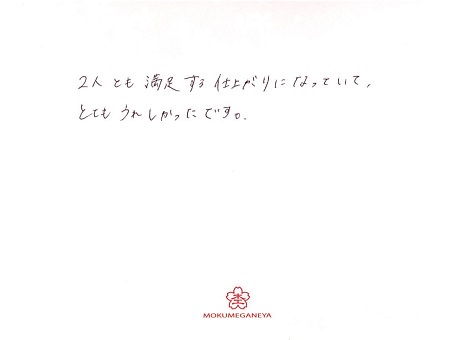 2人とも満足する仕上がりになっていて、
とてもうれしかったです。
MOKUMEGANEYA